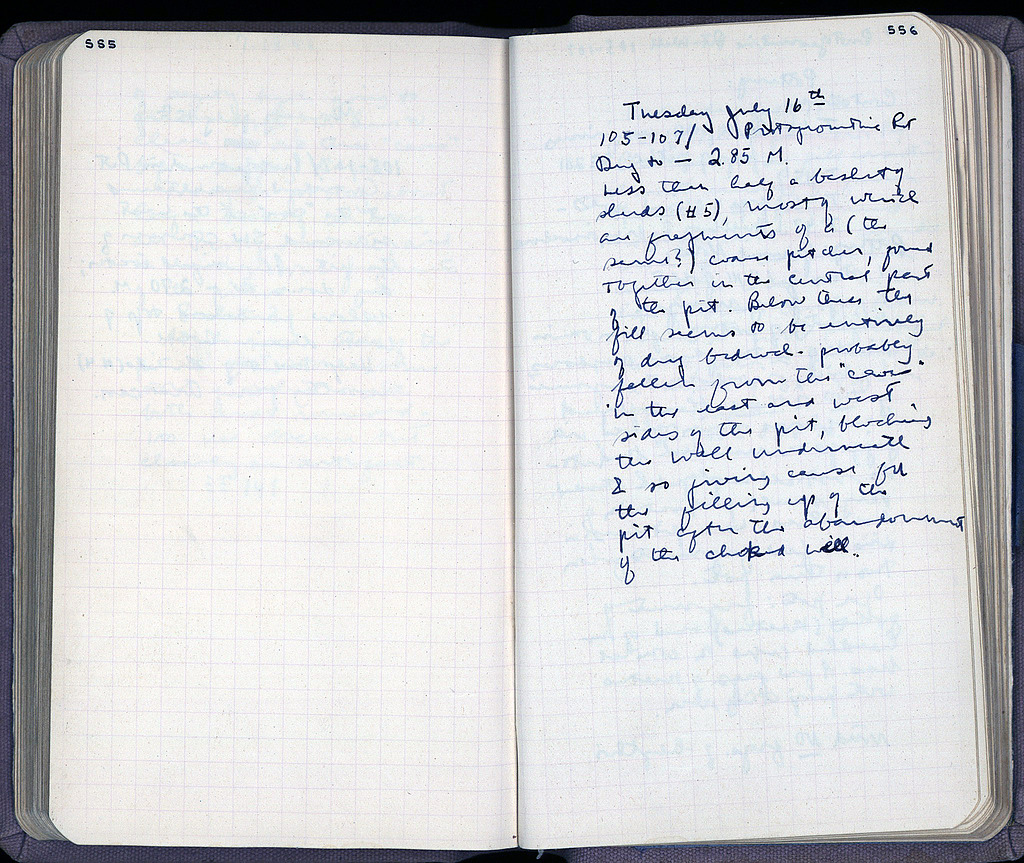 565
556
Tuesday July 16th
105-107/ Protogeometric Pit
Dug to — 2.85 M.
Less than half a basket of
sherds (#5), mostly which
are fragments of a (the
same?) coarse pitcher, found
together in the central part
of the pit. Below this the
fill seems to be entirely
of dug bedrock - probably
fallen from the "caves"
in the east and west
sides of the pit, blocking
the well underneath
& so giving cause for
the filling up of the
pit after the abandonment
of the choked well.